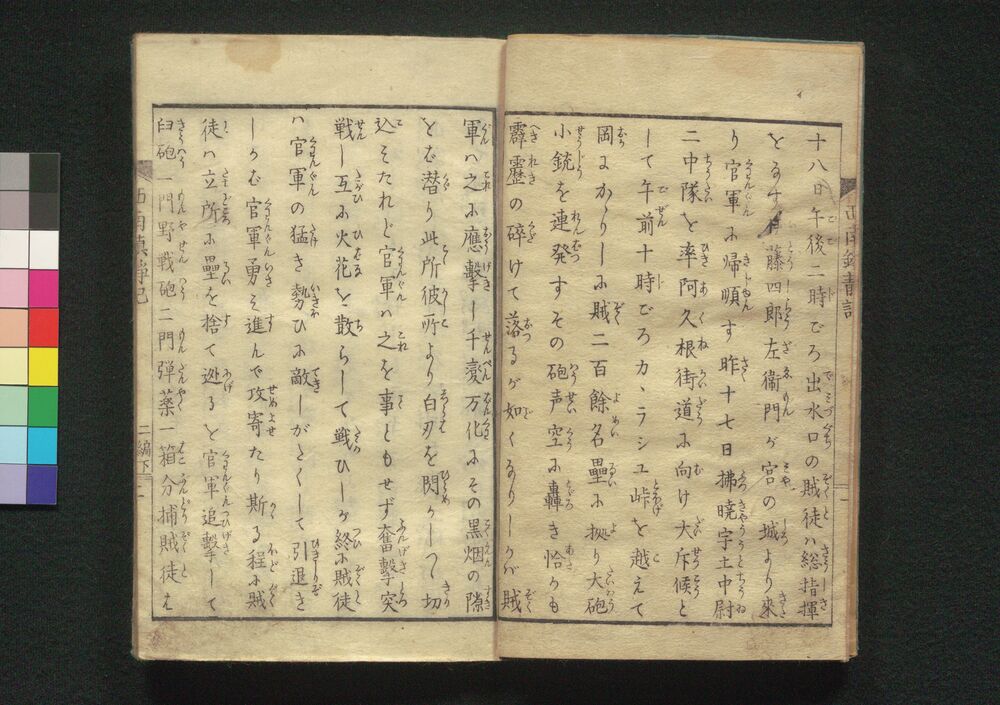 十八日午後二時ごろ出水口の賊徒ハ総指揮
をなす伊藤四郎左衛門ガ宮の城より来
り官軍に帰順す昨十七日拂暁宇土中尉
二中隊を率阿久根街道に向け大斥候と
して午前十時ごろカヽラシユ峠を越えて
岡にかゝりしに賊二百餘名壘に拠り大砲
小銃を連発すその砲声空に轟き恰かも
霹靂の碎けて落るが如くなりしかバ賊
軍ハ之に應撃し千変万化にその黒烟の隙
をば潜り此所彼所より白刃を閃かしつゝ切
込そたれど官軍ハ之を事ともせず奮撃突
戦し互に火花を散らして戦ひしが終に賊徒
ハ官軍の猛き勢ひに敵しがたくして引退き
しかば官軍勇を進んで攻寄たり斯る程に賊
徒ハ立所に壘を捨て迯るを官軍追撃して
臼砲一門野戦砲二門弾薬一箱分捕賊徒を
二編下